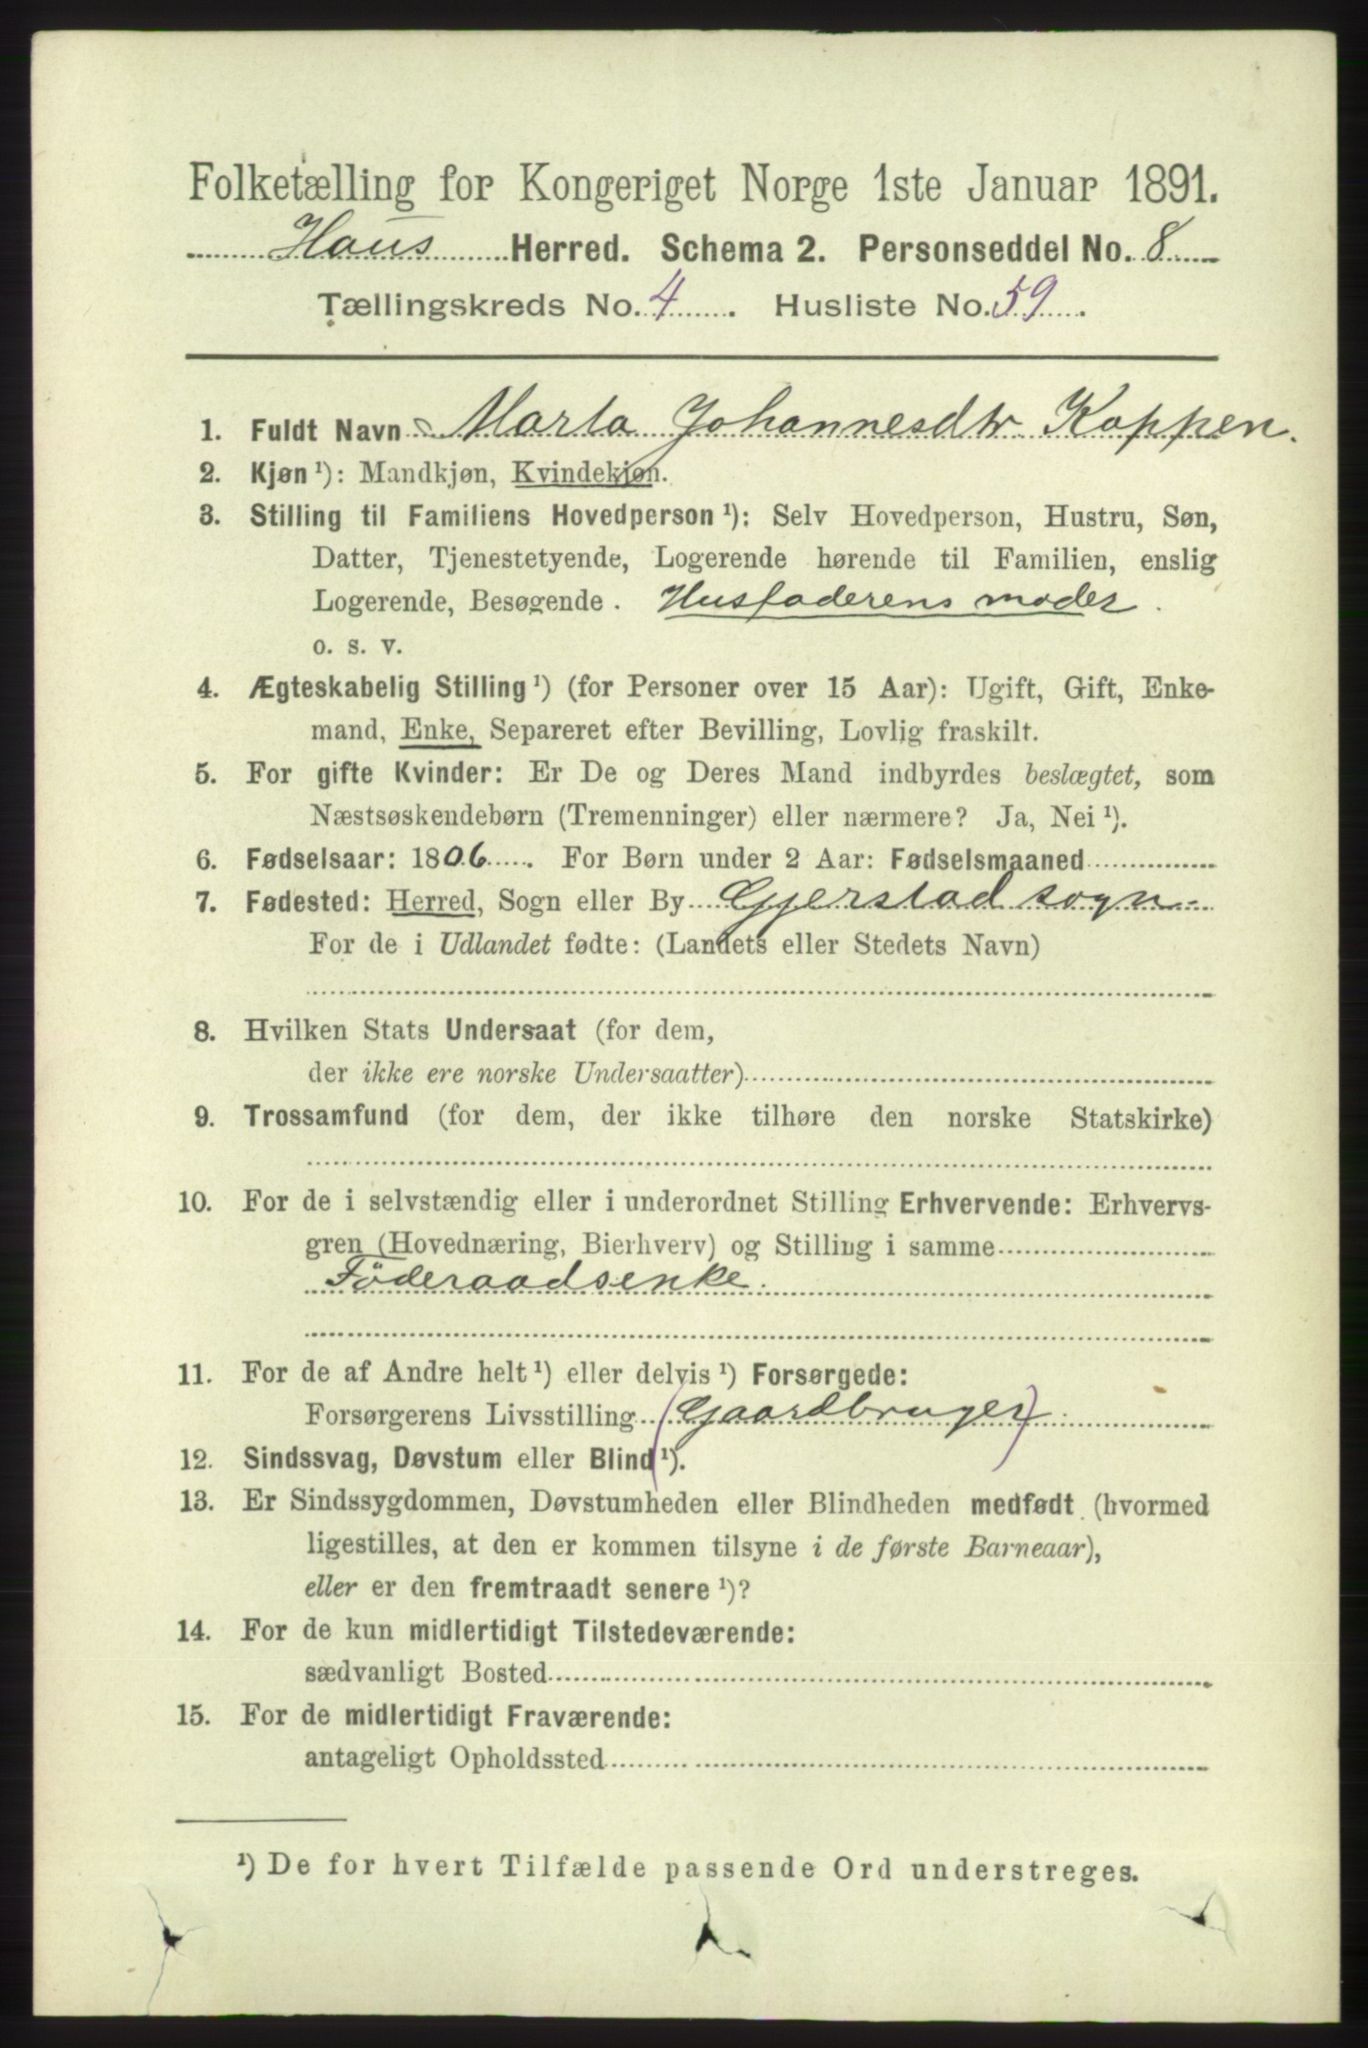 Folketælling for Kongeriget Norge 1ste Januar 1891.
Haus Herred. Schema 2. Personseddel No. 8
Tællingskreds No. 4. Husliste No. 59.
1. Fuldt Navn Marta Johannesdtr Koppen.
2. Kjøn ¹): Mandkjøn, Kvindekjøn.
3. Stilling til Familiens Hovedperson ¹): Selv Hovedperson, Hustru, Søn,
Datter, Tjenestetyende, Logerende hørende til Familien, enslig
Logerende, Besøgende. Husfaderens moder.
o. s. v.
4. Ægteskabelig Stilling ¹) (for Personer over 15 Aar): Ugift, Gift, Enke-
mand, Enke, Separeret efter Bevilling, Lovlig fraskilt.
5. For gifte Kvinder: Er De og Deres Mand indbyrdes beslægtet, som
Næstsøskendebørn (Tremenninger) eller nærmere? Ja, Nei ¹).
6. Fødselsaar: 1806. For Børn under 2 Aar: Fødselsmaaned
7. Fødested: Herred, Sogn eller By Gjerstad sogn-
For de i Udlandet fødte: (Landets eller Stedets Navn)
8. Hvilken Stats Undersaat (for dem,
der ikke ere norske Undersaatter)
9. Trossamfund (for dem, der ikke tilhøre den norske Statskirke)
10. For de i selvstændig eller i underordnet Stilling Erhvervende: Erhvervs-
gren (Hovednæring, Bierhverv) og Stilling i samme
Föderaadsenke.
11. For de af Andre helt ¹) eller delvis ¹) Forsørgede:
Forsørgerens Livsstilling (Gaardbruger)
12. Sindssvag, Døvstum eller Blind ¹).
13. Er Sindssygdommen, Døvstumheden eller Blindheden medfødt (hvormed
ligestilles, at den er kommen tilsyne i de første Barneaar),
eller er den fremtraadt senere ¹)?
14. For de kun midlertidigt Tilstedeværende:
sædvanligt Bosted
15. For de midlertidigt Fraværende:
antageligt Opholdssted
¹) De for hvert Tilfælde passende Ord understreges.